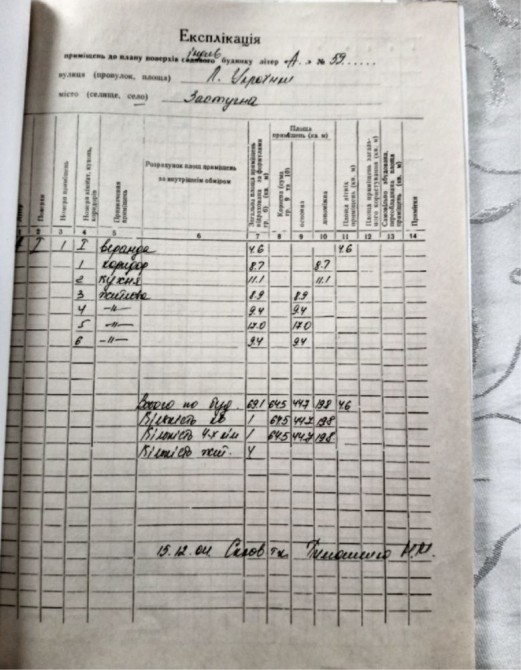 Експлікація
індив
приміщень до плану поверхів садового будинку літер „А" № 59......
вулиця (провулок, площа) Л. Українки
місто (селище, село) Заступна
Поверхи
Номери приміщень
Номери кімнат, кухонь, коридорів
Призначення приміщень
Розрахунок площ приміщень за внутрішнім обміром
Загальна площа приміщень
Площа приміщень (кв. м)
Квартири (сума гр. 9 та 10)
основна
допоміжна
Площа літніх приміщень (кв. м)
Примітки
2 3 4 5 6 7 8 9 10 11 12 13 14
I 1 I веранда 4.6 4.6
1 коридор 8.7 8.7
2 кухня 11.1 11.1
3 житлова 8.9 8.9
4 -"- 9.4 9.4
5 -"- 17.0 17.0
6 -"- 9.4 9.4
Всього по буд 69.1 64.5 44.7 19.8 4.6
Кількість кв 1 64.5 44.7 19.8
Кількість 4-х кім 1 64.5 44.7 19.8
Кількість жит. 4
15.12.04